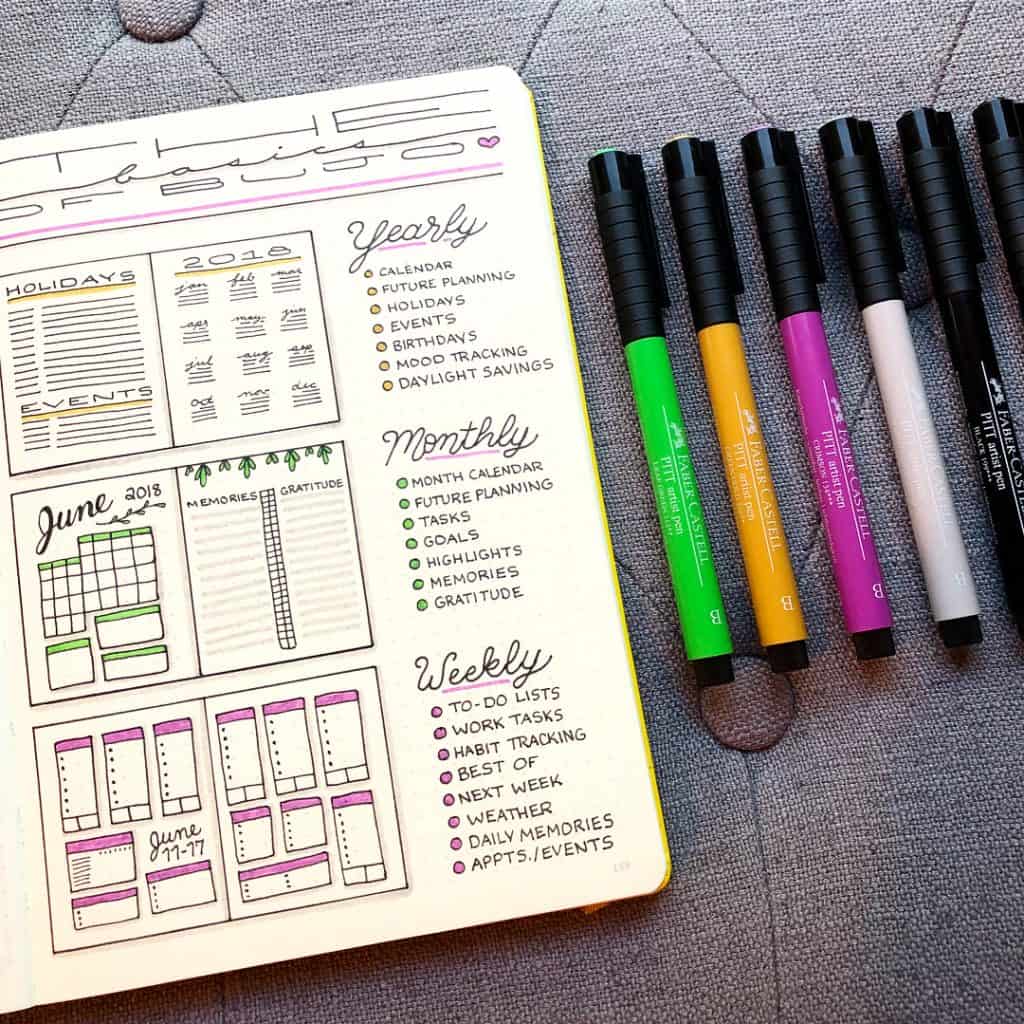 THE
basics
OF BUJO
HOLIDAYS
EVENTS
2018
jan feb mar
apr may jun
jul aug sep
oct nov dec
Yearly
CALENDAR
FUTURE PLANNING
HOLIDAYS
EVENTS
BIRTHDAYS
MOOD TRACKING
DAYLIGHT SAVINGS
June 2018
MEMORIES GRATITUDE
Monthly
MONTH CALENDAR
FUTURE PLANNING
TASKS
GOALS
HIGHLIGHTS
MEMORIES
GRATITUDE
June
11-17
Weekly
TO-DO LISTS
WORK TASKS
HABIT TRACKING
BEST OF
NEXT WEEK
WEATHER
DAILY MEMORIES
APPTS./EVENTS
FABER-CASTELL
PITT artist pen
B
FABER-CASTELL
PITT artist pen
B
FABER-CASTELL
PITT artist pen
B
B
FABER-CASTELL
PITT artist pen